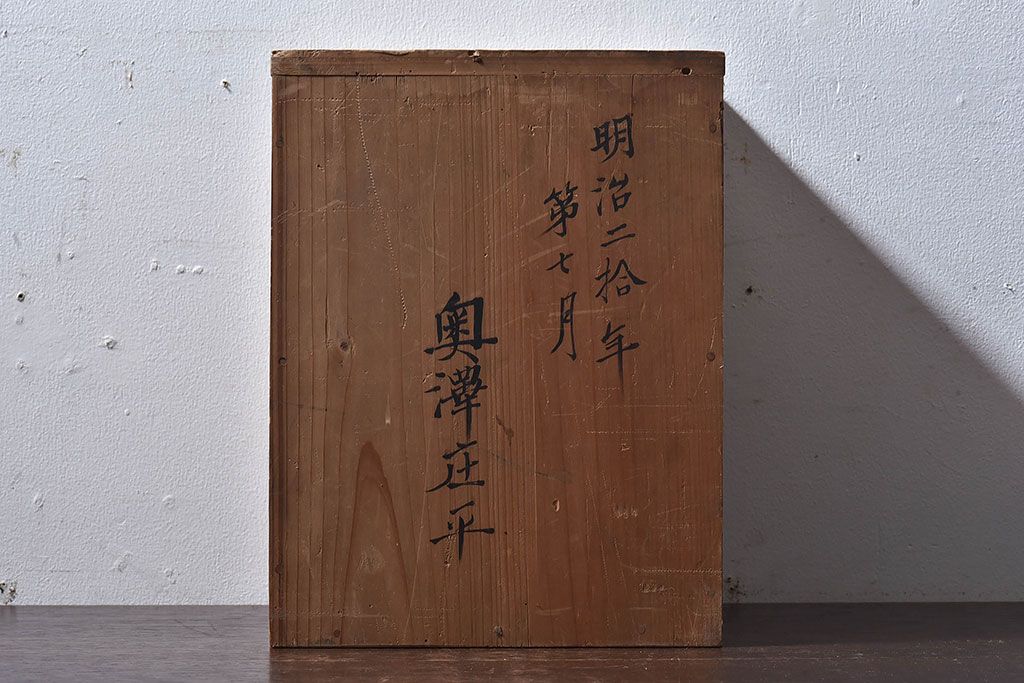 明治二拾年
第七月
奥澤庄平